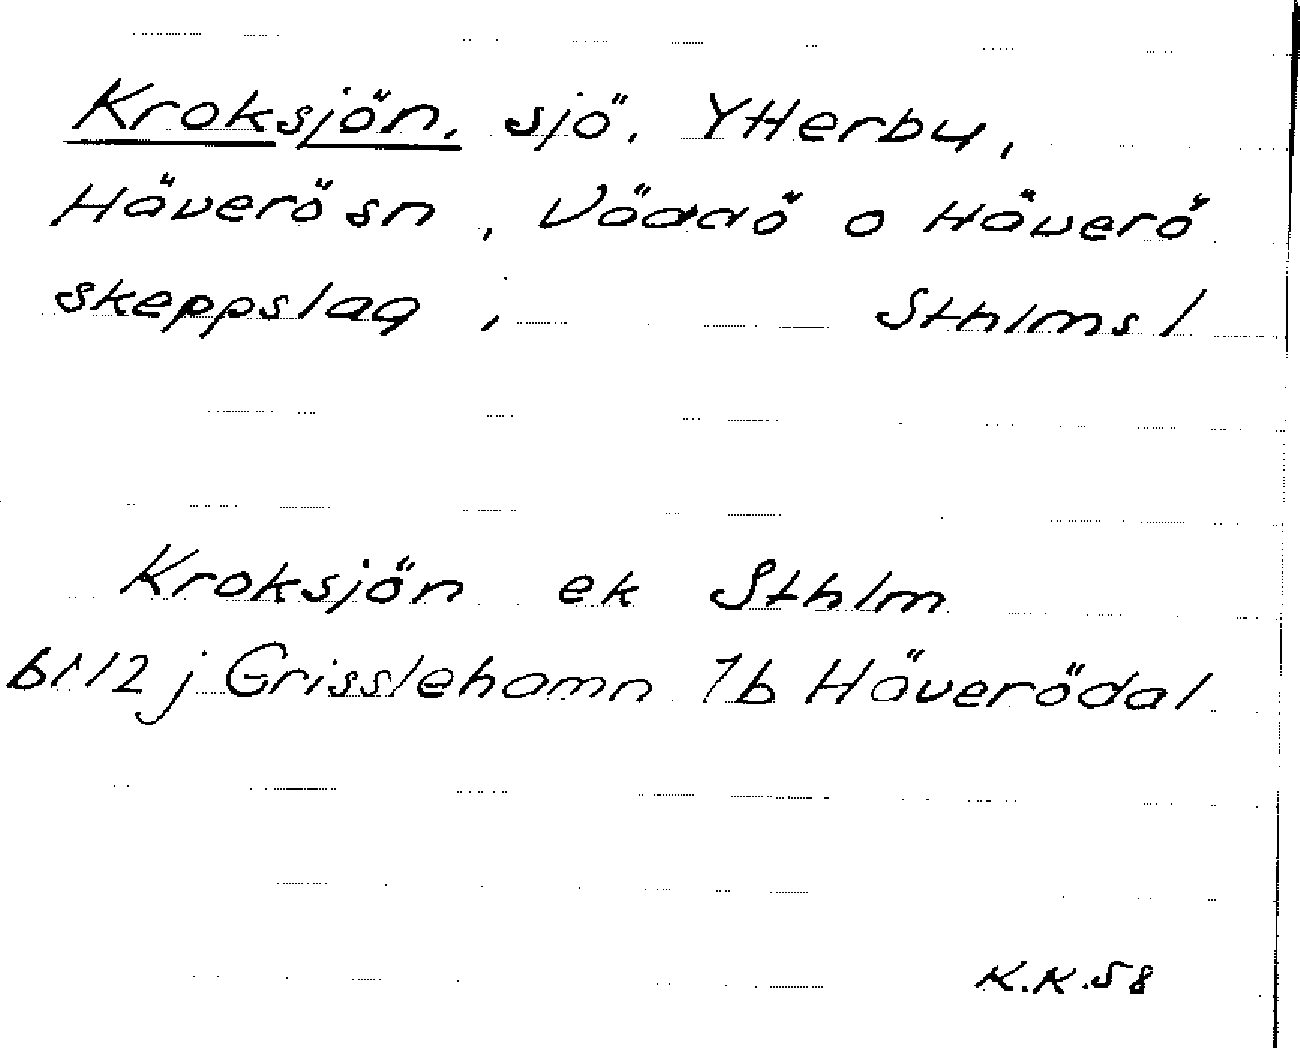 Kroksjön, sjö, Ytterby,
Häverö sn, Väddö o Häverö
skeppslag, Sthlms l
Kroksjön ek Sthlm
bl 12 j Grisslehamn 1b Häverödal
K.K.58